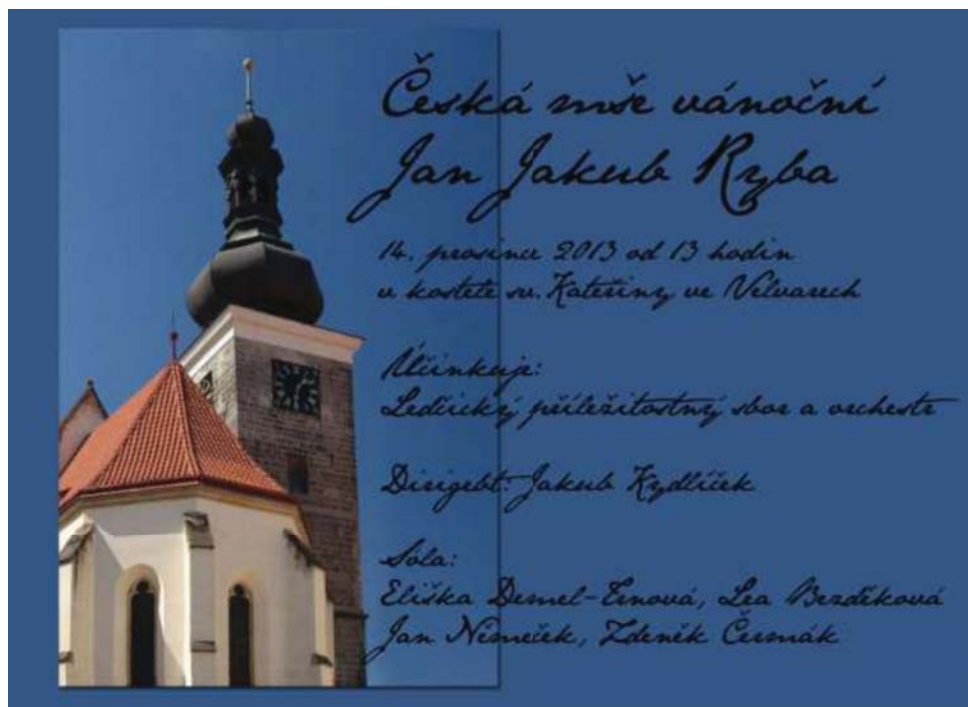 Česká mše vánoční
Jan Jakub Ryba
14. prosince 2013 od 13 hodin
v kostele sv. Kateřiny ve Velvarech
Účinkuje:
Ledčický příležitostný sbor a orchestr
Dirigebt: Jakub Kydlíček
Sóla:
Eliška Demel-Trnová, Lea Bezděková
Jan Němeček, Zdeněk Čermák